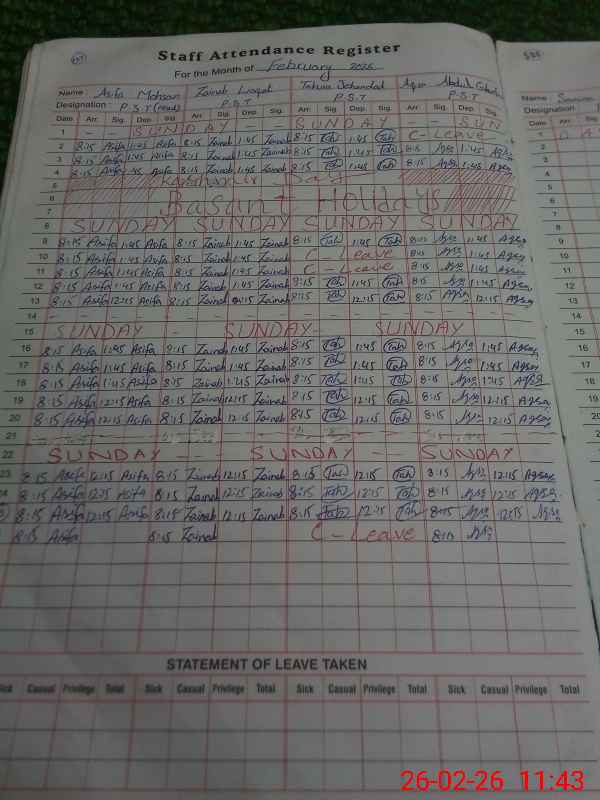 Staff Attendance Register
For the Month of February 2026
Name : Asifa Mohsan Zainab Liaqat Tahira Aqsa Abdul
Designation : P.S.T (Head) P.S.T P.S.T P.S.T
Date Arr. Sig. Dep. Sig. Arr. Sig. Dep. Sig. Arr. Sig. Dep. Sig. Arr. Sig. Dep. Sig.
1 SUNDAY SUNDAY SUN
2 8:15 Asifa 1:45 Asifa 8:15 Zainab 1:45 Zainab 8:15 Tah 1:45 Tah C-Leave
3 8:15 Asifa 1:45 Asifa 8:15 Zainab 1:45 Zainab 8:15 Tah 1:45 Tah 8:15 Aqsa 1:45 Aqsa
4 8:15 Asifa 1:45 Asifa 8:15 Zainab 1:45 Zainab 8:15 Tah 1:45 Tah 8:15 Aqsa 1:45 Aqsa
5 Kashmir Day
6
7 Basant Holidays
8 SUNDAY SUNDAY SUNDAY SUNDAY
9 8:15 Asifa 1:45 Asifa 8:15 Zainab 1:45 Zainab 8:15 Tah 1:45 Tah 8:15 Aqsa 1:45 Aqsa
10 8:15 Asifa 1:45 Asifa 8:15 Zainab 1:45 Zainab C-Leave 8:15 Aqsa 1:45 Aqsa
11 8:15 Asifa 1:45 Asifa 8:15 Zainab 1:45 Zainab C-Leave 8:15 Aqsa 1:45 Aqsa
12 8:15 Asifa 1:45 Asifa 8:15 Zainab 1:45 Zainab 8:15 Tah 1:45 Tah 8:15 Aqsa 1:45 Aqsa
13 8:15 Asifa 12:15 Asifa 8:15 Zainab 12:15 Zainab 8:15 Tah 12:15 Tah 8:15 Aqsa 12:15 Aqsa
14
15 SUNDAY SUNDAY SUNDAY
16 8:15 Asifa 1:45 Asifa 8:15 Zainab 1:45 Zainab 8:15 Tah 1:45 Tah 8:15 Aqsa 1:45 Aqsa
17 8:15 Asifa 1:45 Asifa 8:15 Zainab 1:45 Zainab 8:15 Tah 1:45 Tah 8:15 Aqsa 1:45 Aqsa
18 8:15 Asifa 1:45 Asifa 8:15 Zainab 1:45 Zainab 8:15 Tah 1:45 Tah 8:15 Aqsa 1:45 Aqsa
19 8:15 Asifa 12:15 Asifa 8:15 Zainab 12:15 Zainab 8:15 Tah 12:15 Tah 8:15 Aqsa 12:15 Aqsa
20 8:15 Asifa 12:15 Asifa 8:15 Zainab 12:15 Zainab 8:15 Tah 12:15 Tah 8:15 Aqsa 12:15 Aqsa
21
22 SUNDAY SUNDAY SUNDAY
23 8:15 Asifa 12:15 Asifa 8:15 Zainab 12:15 Zainab 8:15 Tah 12:15 Tah 8:15 Aqsa 12:15 Aqsa
8:15 Asifa 12:15 Asifa 8:15 Zainab 12:15 Zainab 8:15 Tah 12:15 Tah 8:15 Aqsa 12:15 Aqsa
8:15 Asifa 12:15 Asifa 8:15 Zainab 12:15 Zainab 8:15 Tah 12:15 Tah 8:15 Aqsa 12:15 Aqsa
8:15 Asifa 8:15 Zainab C-Leave 8:15 Aqsa
STATEMENT OF LEAVE TAKEN
Sick Casual Privilege Total Sick Casual Privilege Total Sick Casual Privilege Total Sick Casual Privilege Total
Name :
Designation
Date Arr.
26-02-26 11:43